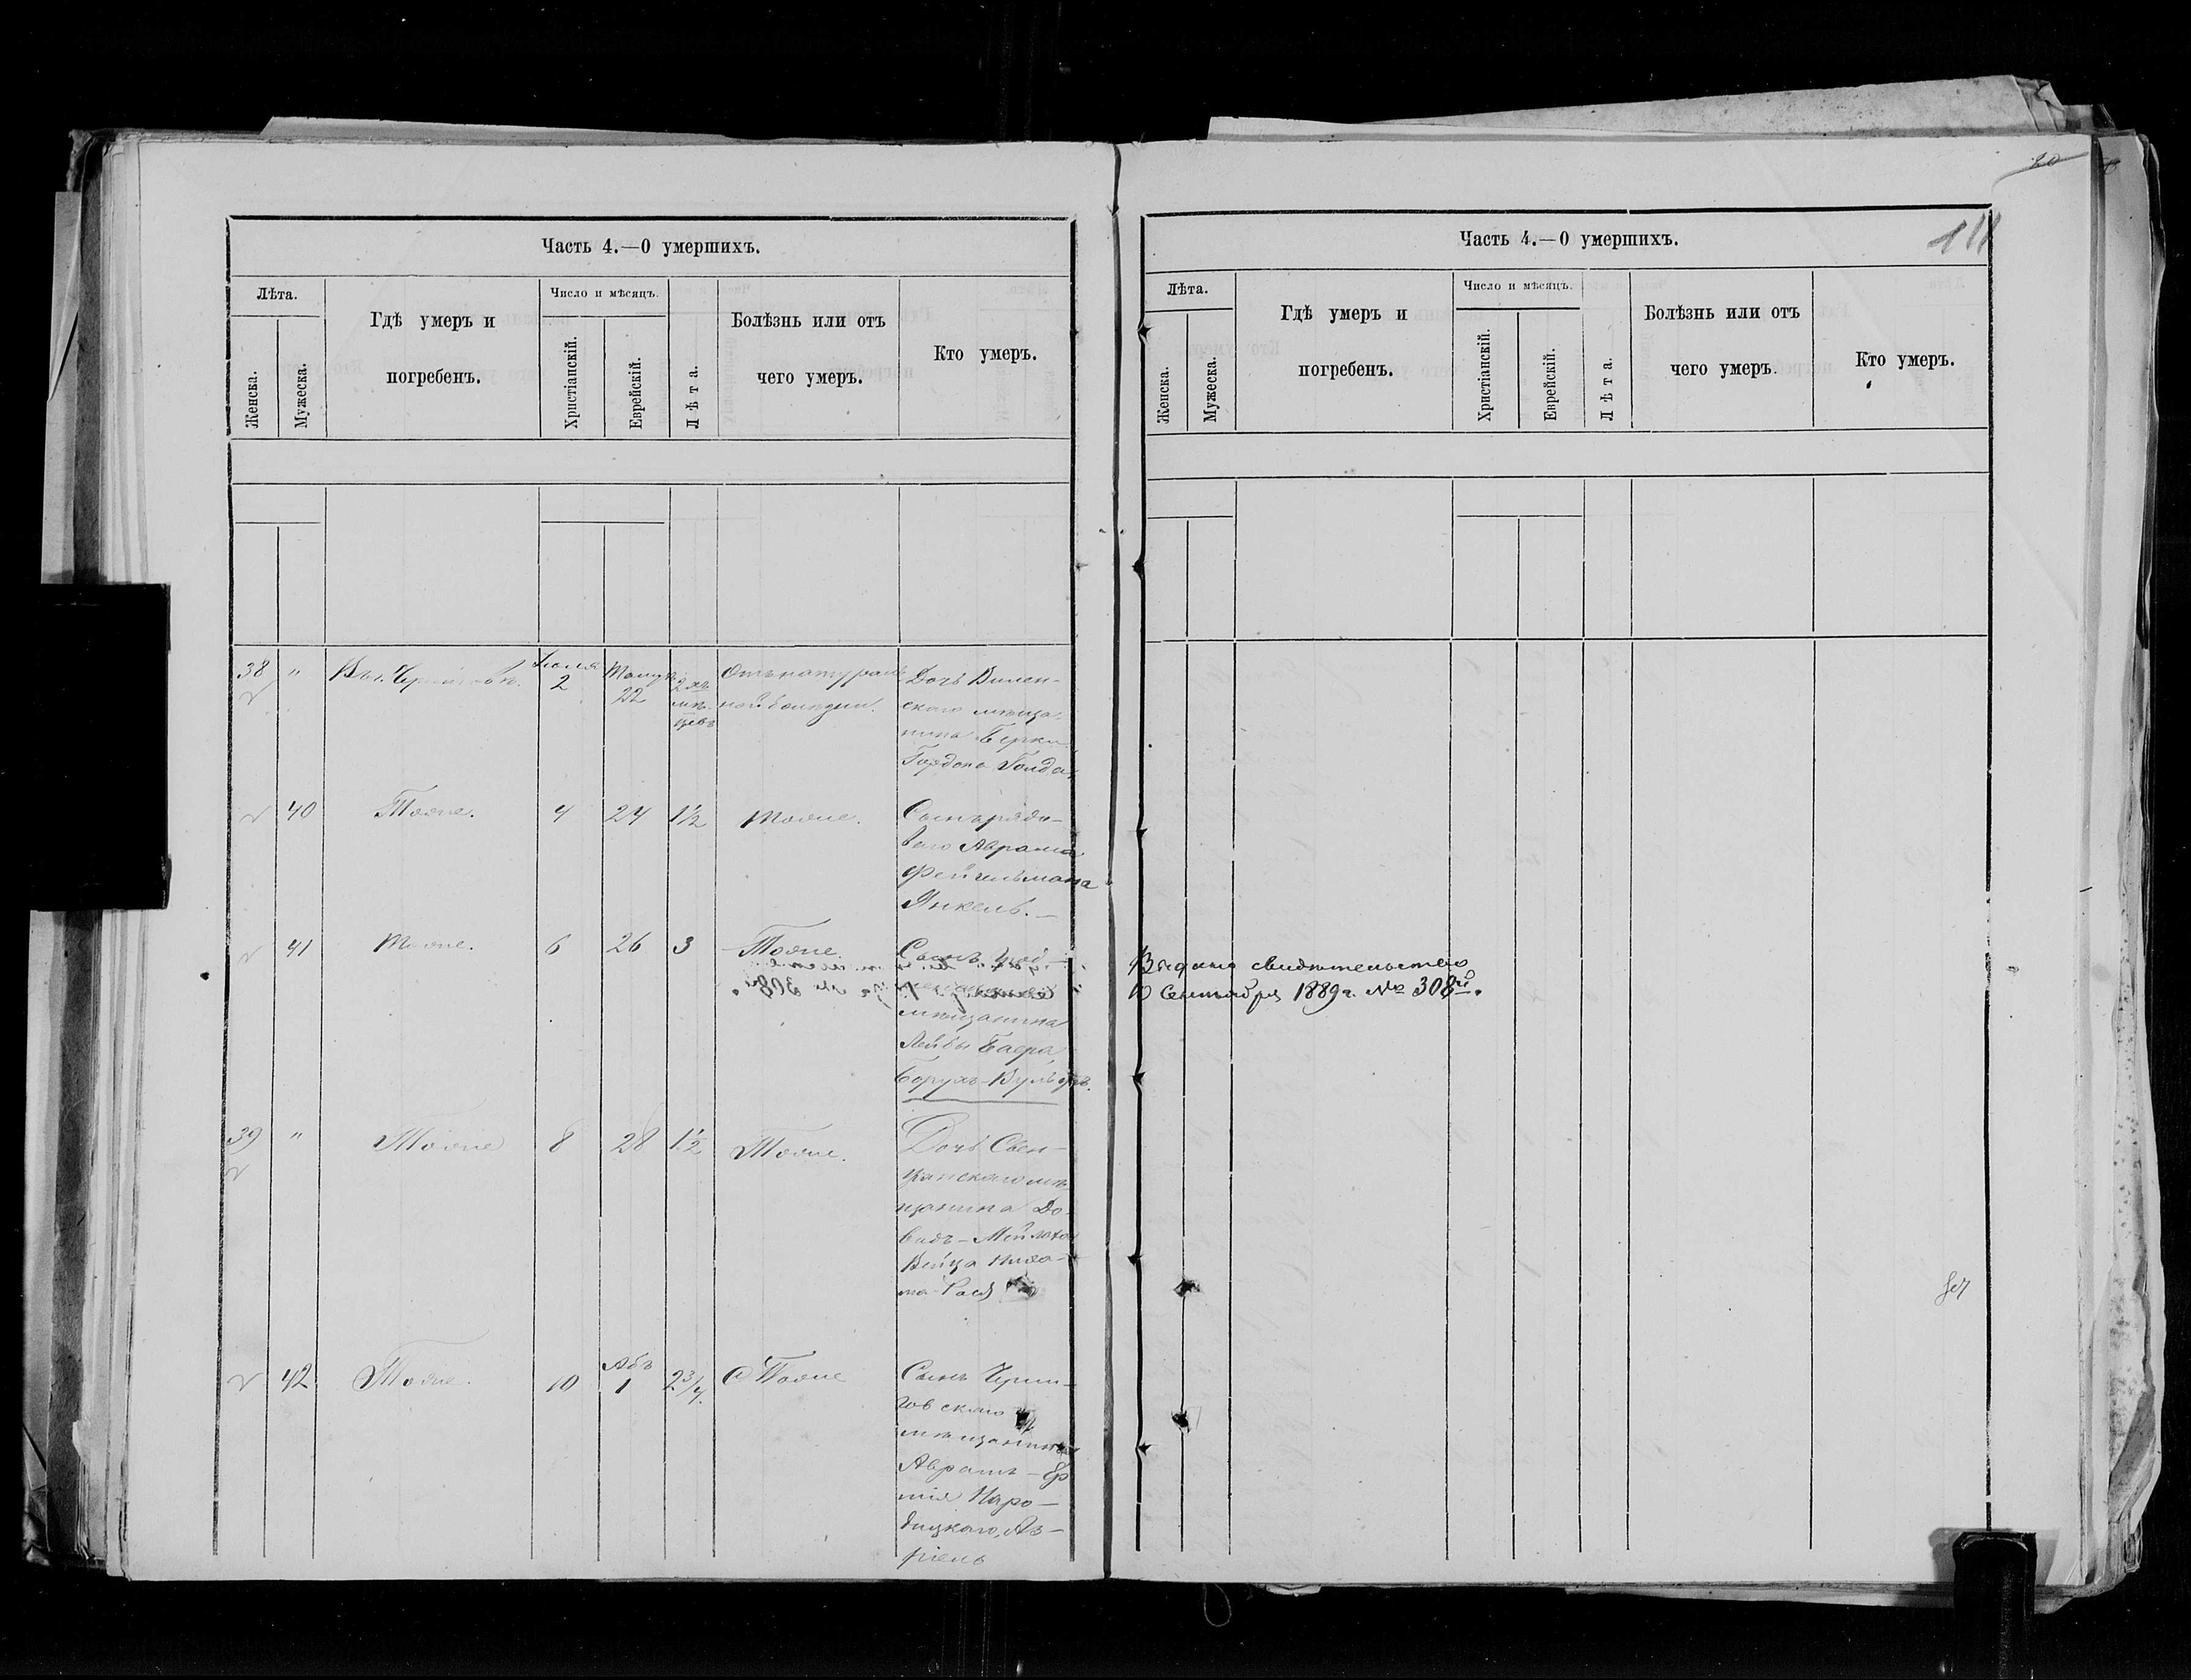 Часть 4.—О умершихъ.
Лѣта.
Женска.
Мужеска.
Гдѣ умеръ и
погребенъ.
Число и мѣсяцъ.
Христіанскій.
Еврейскій.
Лѣта.
Болѣзнь или отъ
чего умеръ.
Кто умеръ.
38 " Въ г. Черниговѣ. Іюля 2 22 2хъ мѣ-
сяцевъ
Отъ натураль
ной болѣзни.
Дочь Вилен-
скаго мѣща-
нина Берки
Гордона Голда
40 Тоже. 4 24 1½ Тоже.
Сынъ рядо-
ваго Абрама
Фейгельмана
Янкель.—
41 Тоже. 6 26 3 Тоже.
Сынъ
мѣщанина
Лейбы Баера,
Борухъ-Вульфъ.
39 " Тоже 8 28 1½ Тоже.
Дочь Свен-
цянскаго мѣ
щанина До-
видъ-Мейлаха
Вейца
42 Тоже. 10 Абъ 1 2¾ Тоже
Сынъ Черни-
говскаго
мѣщанина
Абрамъ-
Наро-
дицкаго, Аз-
ріель
Часть 4.—О умершихъ.
20
111
Лѣта.
Женска.
Мужеска.
Гдѣ умеръ и
погребенъ.
Число и мѣсяцъ.
Христіанскій.
Еврейскій.
Лѣта.
Болѣзнь или отъ
чего умеръ.
Кто умеръ.
Выдано свидѣтельство
10 Сентября 1889 г. № 308й.